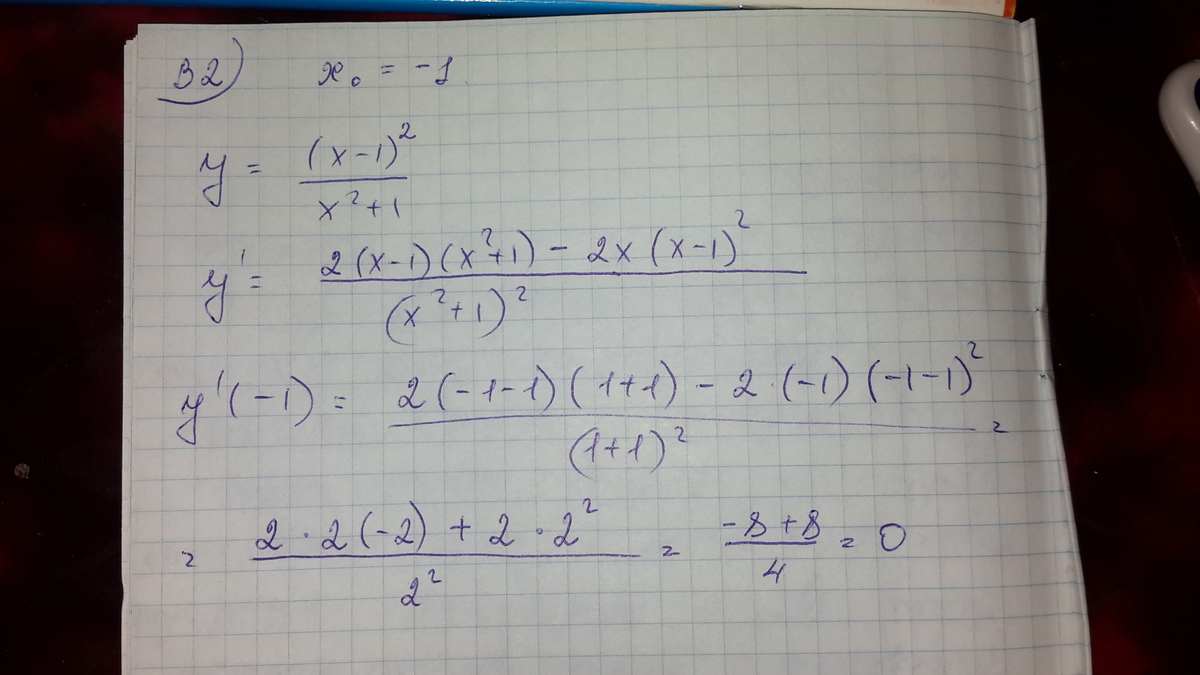 В2) x₀ = -1
y = (x-1)² / x²+1
y' = 2(x-1)(x²+1) - 2x(x-1)² / (x²+1)²
y'(-1) = 2(-1-1)(1+1) - 2·(-1)(-1-1)² / (1+1)² =
= 2·2(-2) + 2·2² / 2² = -8+8 / 4 = 0